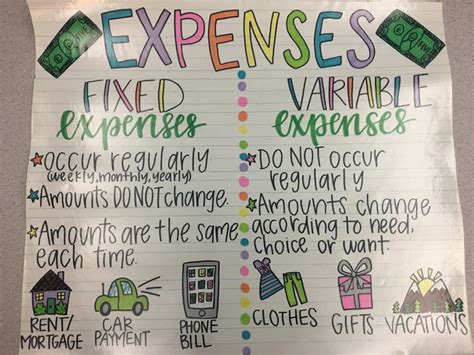 EXPENSES
FIXED
expenses
OCCUR regularly
(weekly, monthly, yearly)
Amounts DO NOT change.
Amounts are the same
each time.
RENT/
MORTGAGE
CAR
PAYMENT
PHONE
BILL
VARIABLE
expenses
DO NOT occur
regularly
Amounts change
according to need,
choice or want.
CLOTHES
GIFTS
VACATIONS